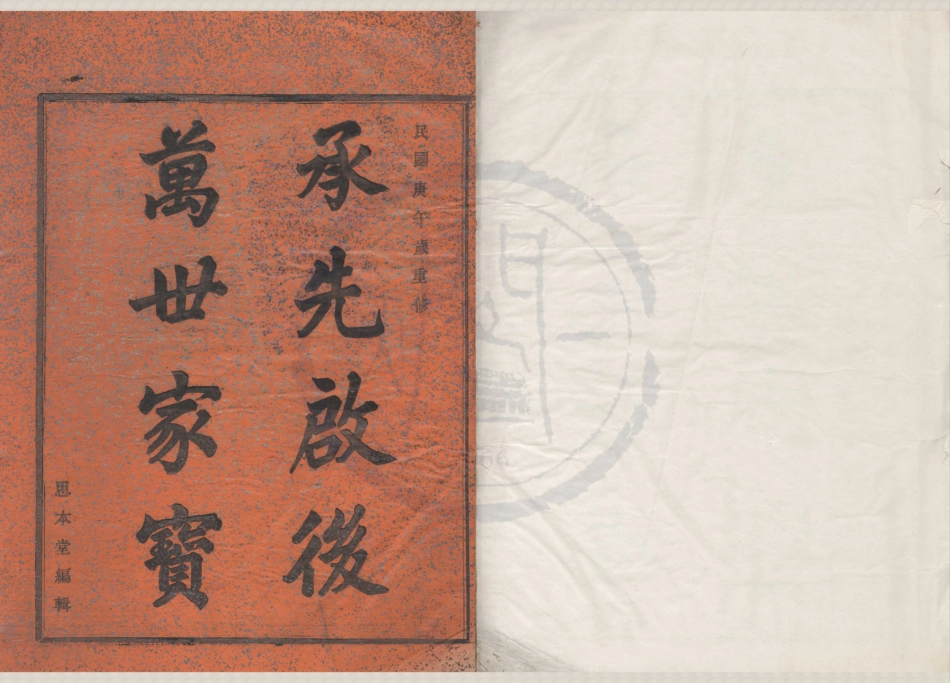 民國庚午歲重修
承先啟後
萬世家寶
思本堂編輯